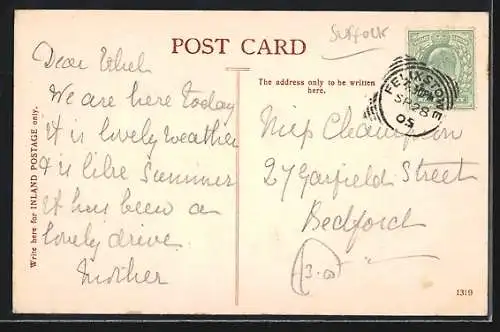 Suffolk
POST CARD
Dear Ethel
We are here today
it is lovely weather
it is like Summer
it has been a
lovely drive
Mother
Write here for INLAND POSTAGE only.
The address only to be written
here.
FELIXSTOWE
SP 28
05
Miss Champion
27 Garfield Street
Bedford
1319